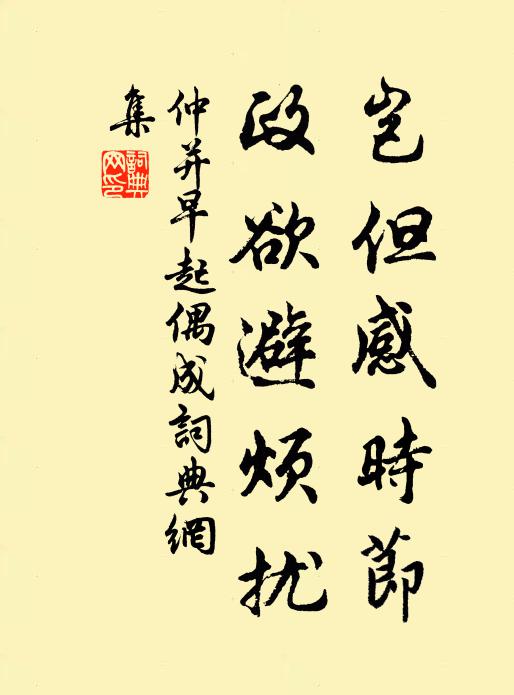 岂但感時節
政欲避煩扰
仲并早起偶成詞典網
集
詞典网印